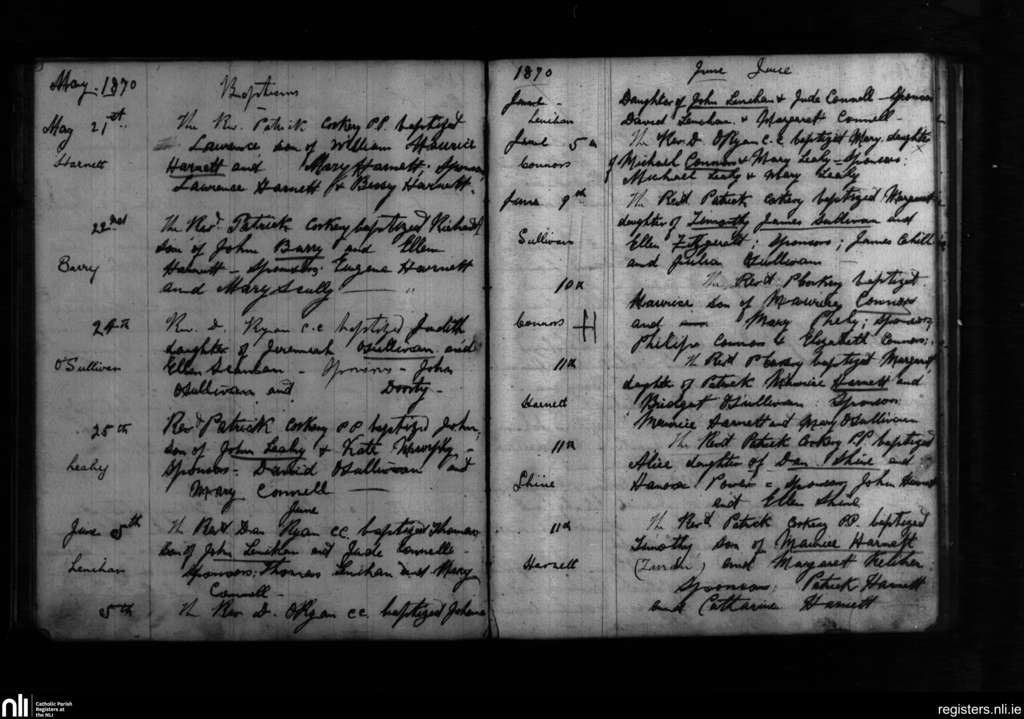 May 1870
Baptisms
May 21st
Harnett
The Rev. Patrick Corkery P.P. baptized
Lawrence son of William Maurice
Harnett and Mary Harnett, Sponsors
Lawrence Harnett & Bessy Harnett.
22nd
Barry
The Revd. Patrick Corkery baptized Richard
son of John Barry and Ellen
Harnett - Sponsors: Eugene Harnett
and Mary Scully
24th
O'Sullivan
Rev. D. Ryan c.c baptized Judith
daughter of Jeremiah O'Sullivan and
Ellen - Sponsors - John
O'Sullivan and
25th
Leahy
Revd Patrick Corkery P.P. baptized John,
son of John Leahy & Kate Murphy -
Sponsors - David O'Sullivan and
Mary Connell
June
June 5th
Linihan
The Revd Dan Ryan cc. baptized Thomas
son of John Linihan and Jude Connell -
Sponsors; Thomas Linihan and Mary
Connell -
5th
The Rev D. O'Ryan cc. baptized Johana
1870
June June
June -
Linihan
Daughter of John Linehan & Jude Connell - Sponsors
David Linehan & Margaret Connell -
June 5th
Connors
The Revd. D O'Ryan c.c. baptized Mary daughter
of Michael Connors & Mary Leahy - Sponsors:
Michael Leahy & Mary Leahy
June 9th
Sullivan
The Revd Patrick Corkery baptized Margaret
daughter of Timothy James Sullivan and
Ellen Fitzgerald; Sponsors; James Cahill
and Julia O'Sullivan
10th
Connors
The Revd P Corkery baptized
Maurice son of Maurice Connors
and Mary ; Sponsors
Philip Connors & Elizabeth Connors;
11th
Harnett
The Revd P Corkery baptized Margaret
daughter of Patrick Maurice Harnett and
Bridget O'Sullivan: Sponsors:
Maurice Harnett and Mary O'Sullivan
11th
Shine
The Revd Patrick Corkery P.P. baptized
Alice daughter of Dan Shine and
Hanora Power - Sponsors John
and Ellen Shine
11th
Harnett
The Revd Patrick Corkery P.P. baptized
Timothy son of Maurice Harnett
and Margaret
Sponsors: Patrick Harnett
and Catharine Harnett
nli
Catholic Parish
Registers at
the NLI
registers.nli.ie